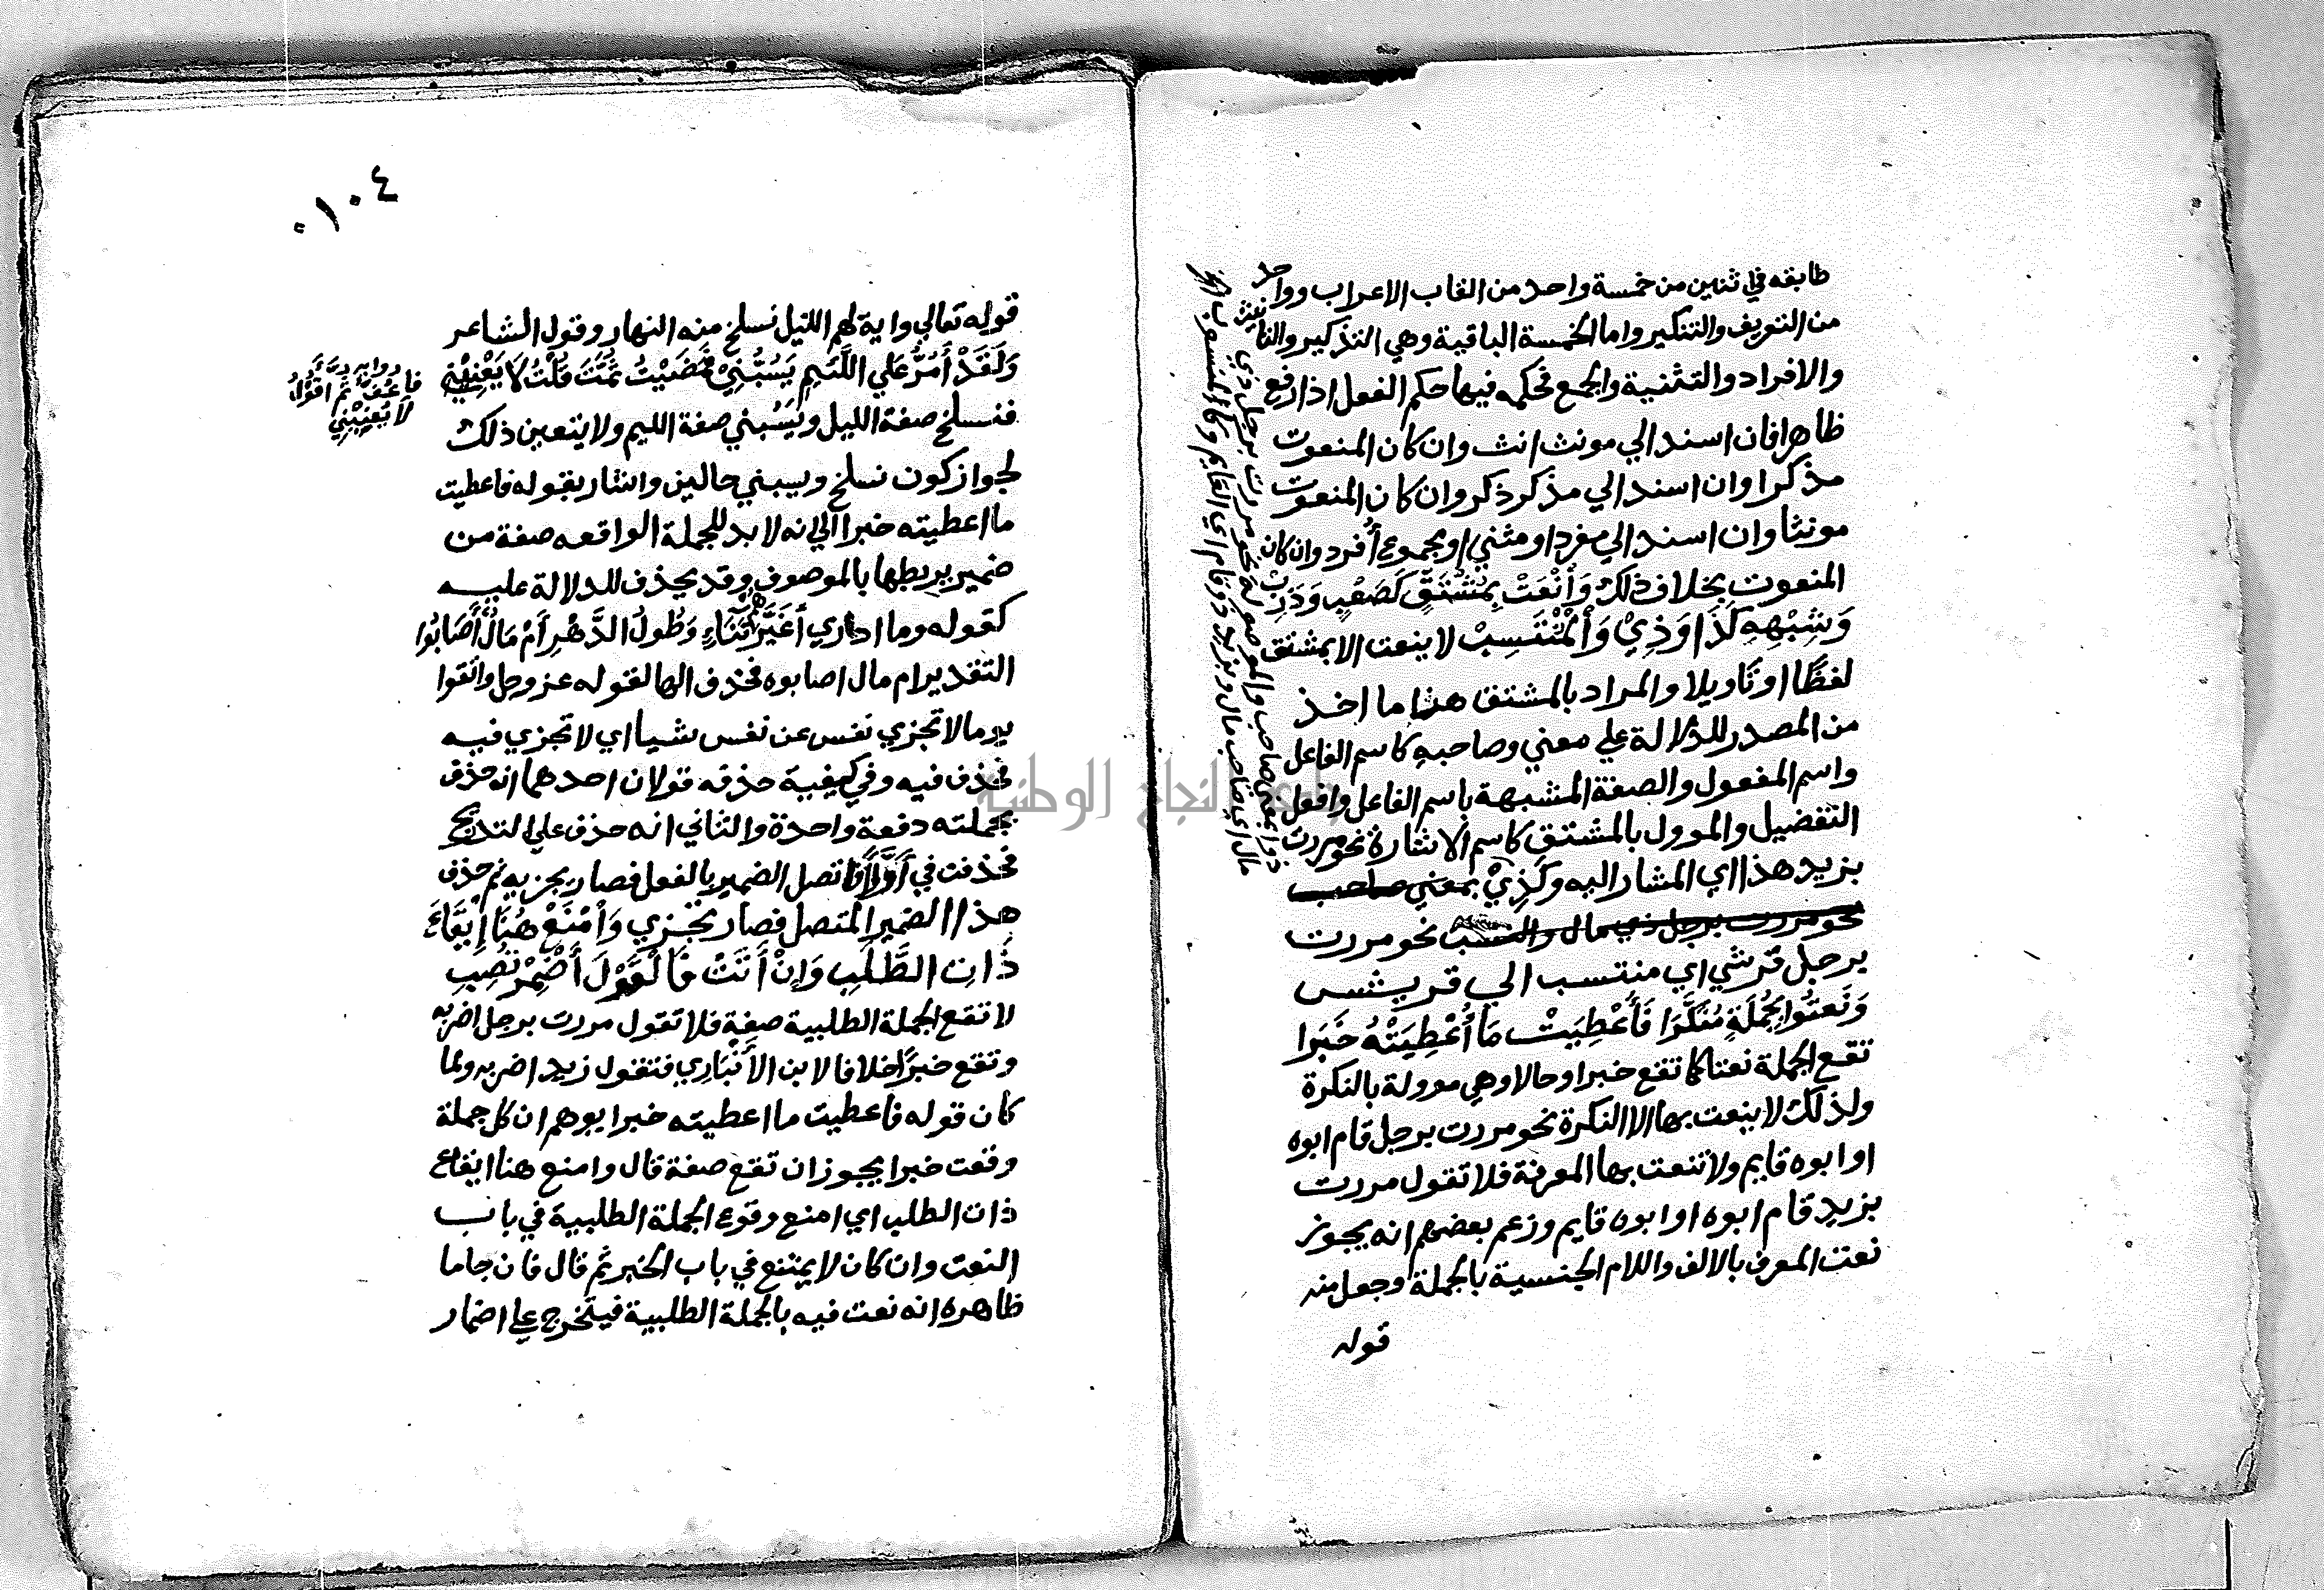 طابقه في ثنين من خمسة واحد من القاب الاعراب وواحد
من التعريف والتنكير واما الخمسة الباقية وهي التذكير والتانيث
والافراد والتثنية والجمع فحكمه فيها حكم الفعل اذا رفع
ظاهرا فان اسند الي مونث انث وان كان المنعوت
مذكرا وان اسند الي مذكر ذكر وان كان المنعوت
مونثا وان اسند الي مفرد او مثني او مجموع أفرد وان كان
المنعوت بخلاف ذلك وَأنْعَتْ بِمُشْتَقٍّ كَصَعْبٍ وَذَرِبْ
وَشِبْهِهِ كَذَا وَذِيْ وَأْلمُنْتَسِبْ لا ينعت الا بمشتق
لفظًا او تأويلا والمراد بالمشتق هنا ما اخذ
من المصدر للدلالة علي معني وصاحبه كاسم الفاعل
واسم المفعول والصفة المشبهة باسم الفاعل وافعل
التفضيل والموول بالمشتق كاسم الاشارة نحو مررت
بزيد هذا اي المشار اليه وكَذِيْ بمعني صاحب
نحو مررت برجل ذي مال نحو مررت
برجل قرشي اي منتسب الي قريش
وَنَعَتُوا بِجُمْلَةٍ مُنَكَّرَا فَأُعْطِيَتْ مَا أُعْطِيَتْهُ خَبَرَا
تقع الجملة نعتا كما تقع خبرا وحالا وهي موولة بالنكرة
ولذلك لا ينعت بها الا النكرة نحو مررت برجل قام ابوه
او ابوه قايم ولا تنعت بها المعرفة فلا تقول مررت
بزيد قام ابوه او ابوه قايم وزعم بعضهم انه يجوز
نعت المعرف بالالف واللام الجنسية بالجملة وجعل منه
قوله
ذو بمعني صاحب مال
٠١٠٤
قوله تعالي واية لهم الليل نسلخ منه النهار وقول الشاعر
وَلَقَدْ أَمُرُّ عَلي اللَّئِيمِ يَسُبُّنِيْ فمَضَيْتُ ثُمَّتَ قُلْتُ لَا يَعْنِيْنِي
رواية
فاعفّ ثم اقول
لا يعنيني
فنسلخ صفة الليل ويَسُبني صفة الليم ولا يتعين ذلك
لجواز كون نسلخ ويسبني حالين واشار بقوله فاعطيت
ما اعطيته خبرا الي انه لا بد للجملة الواقعه صفة من
ضمير يربطها بالموصوف وقد يحذف للدلالة عليه
كقوله وما ادري أغَيَّرَهُم تَنَاءٍ وَطُولُ الدَّهْرِ أَمْ مَالٌ أَصَابُوا
التقدير ام مال اصابوه فحذف الها لقوله عز وجل واتقوا
يوما لا تجزي نفس عن نفس شيا اي لا تجزي فيه
فحذف فيه وفي كيفية حذفه قولان احدهما انه حذف
بجملته دفعة واحدة والثاني انه حذف علي التدريج
فحذفت في أَوَّلًا فاتصل الضمير بالفعل فصار تجزيه ثم حذف
هذا الضمير المتصل فصار تجزي وَأمْنَعْ هُنَا إِيْقَاعَ
ذَاتِ الطَّلَبِ وَإِنْ أَتَتْ فَالْقَوْلَ أَضْمِرْ تُصِبِ
لا تقع الجملة الطلبية صفة فلا تقول مررت برجل اضربه
وتقع خبرًا خلافا لابن الأنْبَارِي فتقول زيد اضربه ولما
كان قوله فاعطيت ما اعطيته خبرا يوهم ان كل جملة
وقعت خبرا يجوز ان تقع صفة قال وامنع هنا ايقاع
ذات الطلب اي امنع وقوع الجملة الطلبية في باب
النعت وان كان لا يمتنع في باب الخبر ثم قال فان جا ما
ظاهره انه نعت فيه بالجملة الطلبية فيتخرج علي اضمار
جامعة النجاح الوطنية